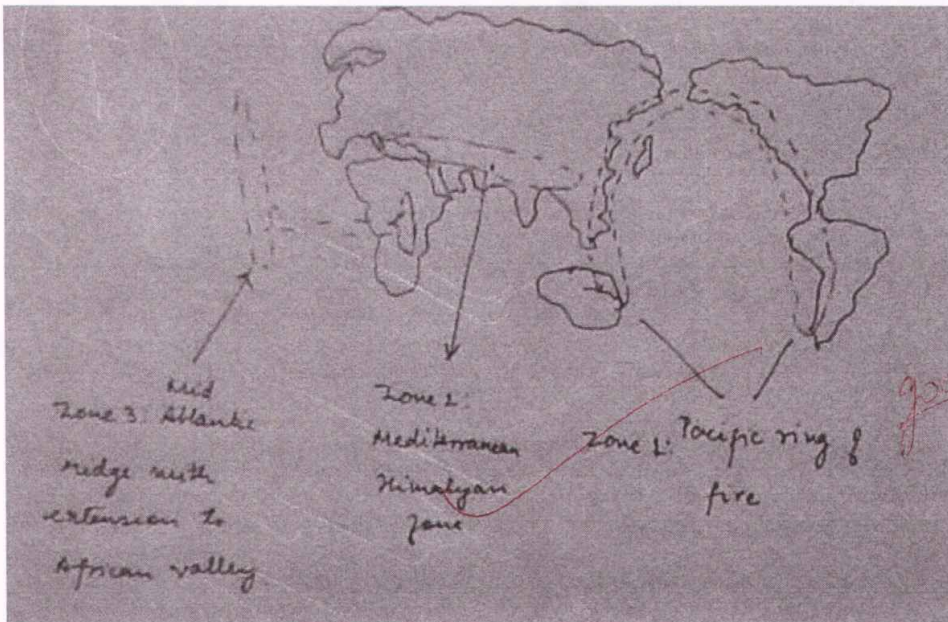 Mid
Zone 3: Atlantic
ridge with
extension to
African valley
Zone 2:
Mediterranean
Himalyan
Zone
Zone 1: Pacific ring of
fire